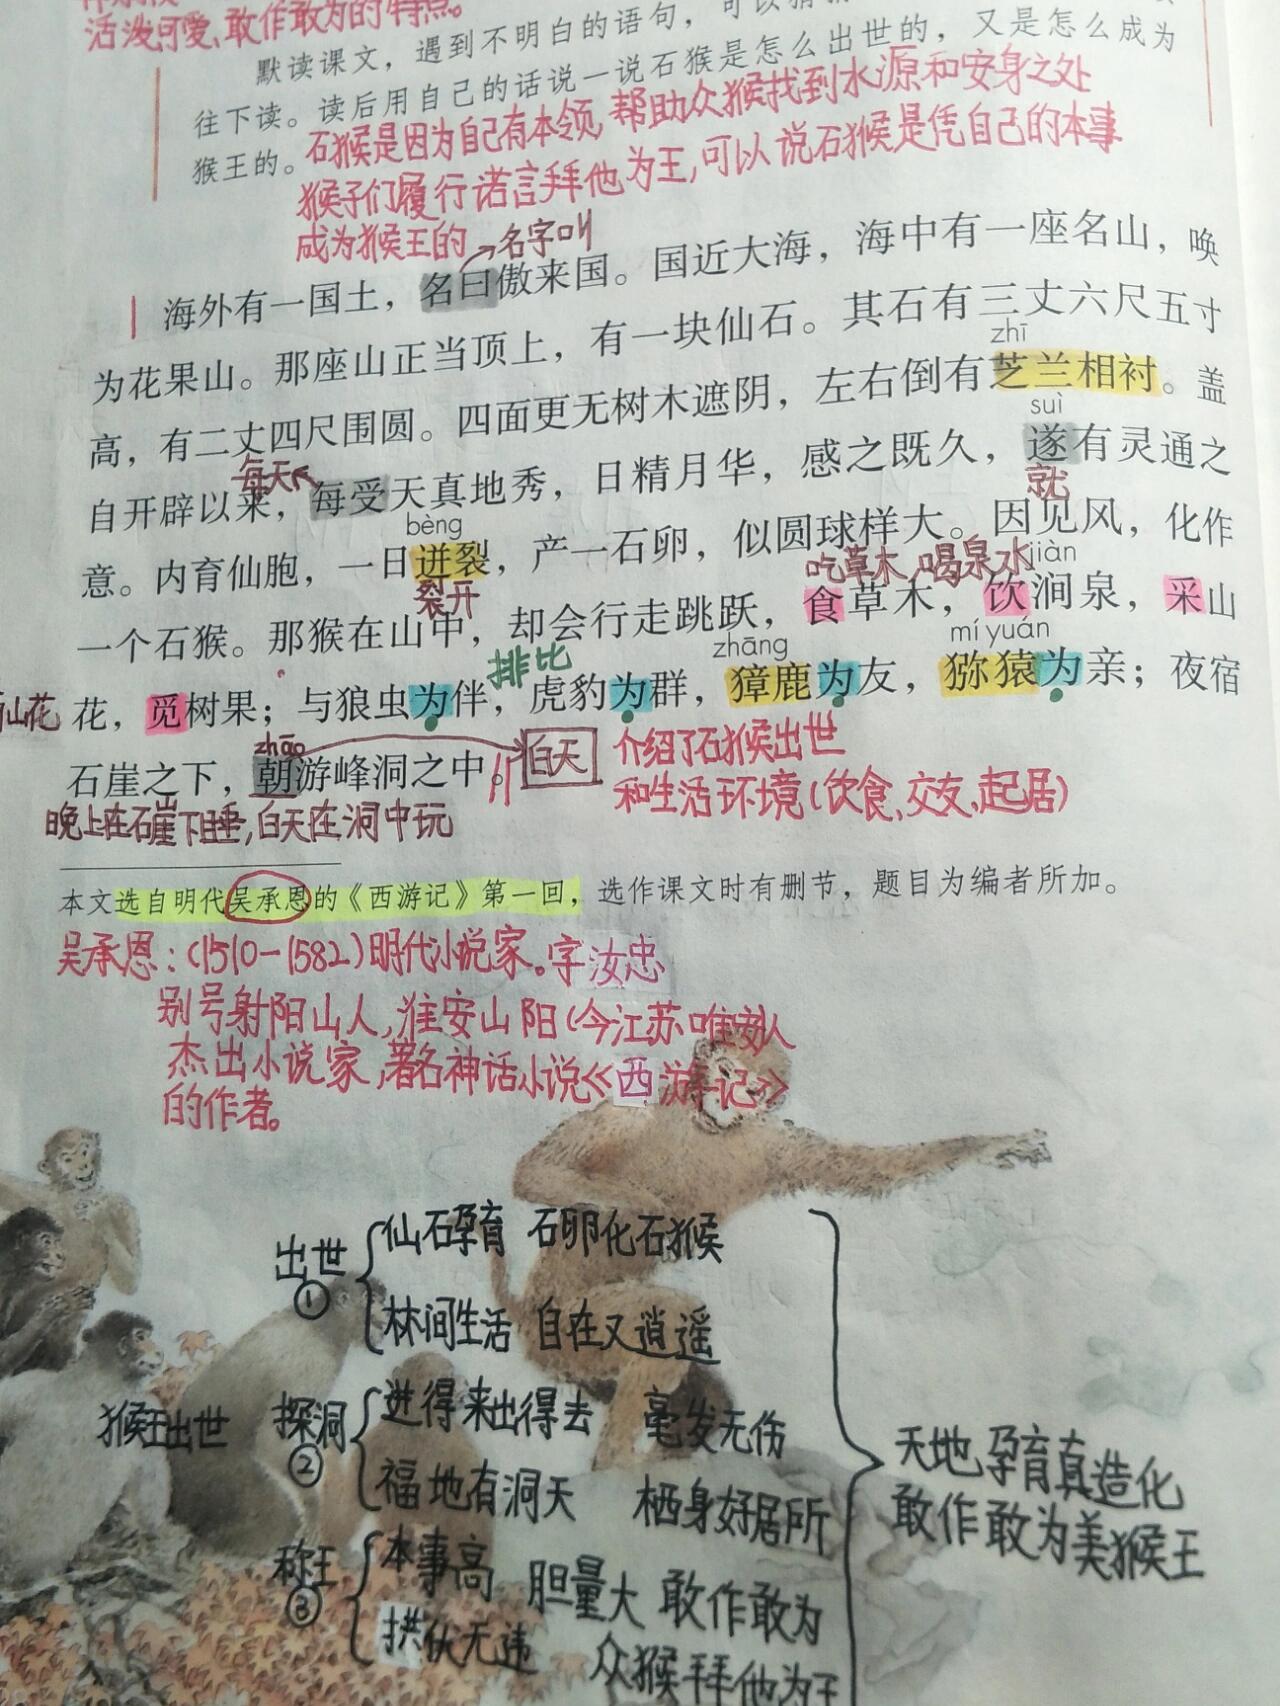 活泼可爱、敢作敢为的特点。
默读课文，遇到不明白的语句，可以猜
往下读。读后用自己的话说一说石猴是怎么出世的，又是怎么成为
猴王的。
石猴是因为自己有本领，帮助众猴找到水源和安身之处
猴子们履行诺言拜他为王，可以说石猴是凭自己的本事
成为猴王的
名字叫
海外有一国土，名曰傲来国。国近大海，海中有一座名山，唤
为花果山。那座山正当顶上，有一块仙石。其石有三丈六尺五寸
zhī
高，有二丈四尺围圆。四面更无树木遮阴，左右倒有芝兰相衬。盖
每天
suì
自开辟以来，每受天真地秀，日精月华，感之既久，遂有灵通之
就
bèng
意。内育仙胞，一日迸裂，产一石卵，似圆球样大。因见风，化作
裂开
吃草木，喝泉水
jiàn
一个石猴。那猴在山中，却会行走跳跃，食草木，饮涧泉，采山
排比
zhāng
mí yuán
仙花
花，觅树果；与狼虫为伴，虎豹为群，獐鹿为友，猕猿为亲；夜宿
zhāo
石崖之下，朝游峰洞之中。
白天
介绍了石猴出世
和生活环境（饮食、交友、起居）
晚上在石崖下睡，白天在洞中玩
本文选自明代吴承恩的《西游记》第一回，选作课文时有删节，题目为编者所加。
吴承恩：（1510-1582）明代小说家。字汝忠
别号射阳山人，淮安山阳（今江苏唯安）人
杰出小说家，著名神话小说《西游记》
的作者。
猴王出世
出世
①
仙石孕育 石卵化石猴
林间生活 自在又逍遥
探洞
②
进得来出得去 毫发无伤
福地有洞天 栖身好居所
称王
③
本事高 胆量大 敢作敢为
拱伏无违 众猴拜他为王
天地孕育真造化
敢作敢为美猴王